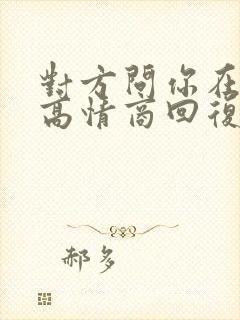 對方問你在
高情商回復
郝多